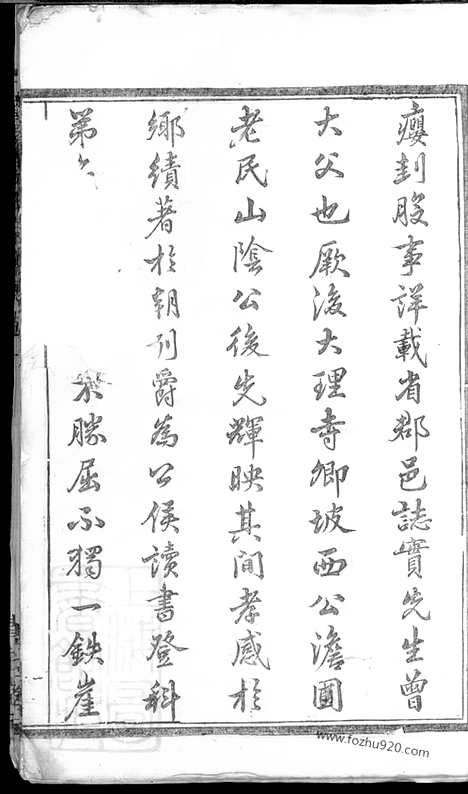 癭刲股事詳載省郡邑誌實先生曾
大父也厥後大理寺卿坡西公澹園
老民山陰公後先輝映其間孝感於
鄉績著於朝列爵為公侯讀書登科
第 不勝屈不獨一鉄崖
www.fozhu920.com